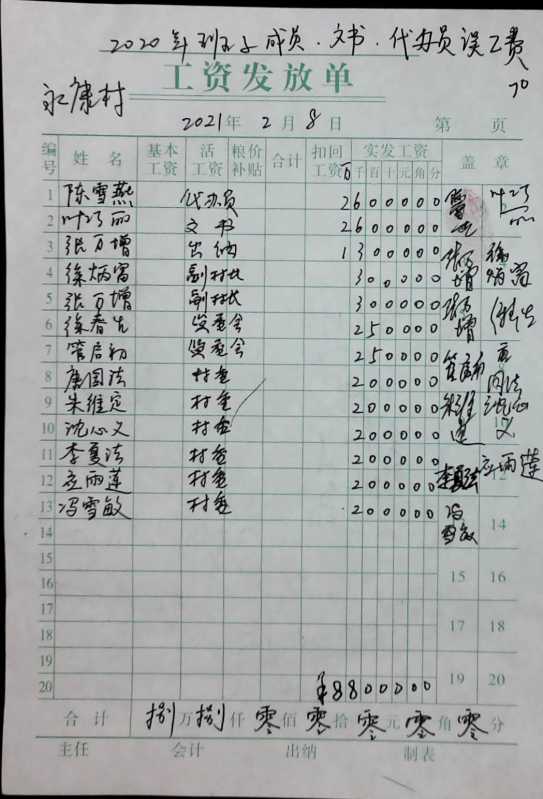 2020年班子成员.文书.代办员误工费
工资发放单
永康村 70
2021年 2月 8日 第 页
编号 姓名 基本工资 活工资 粮价补贴 合计 扣回工资 实发工资 盖章
百 千 百 十 元 角 分
1 陈雪燕 代办员 2600000
2 叶巧丽 文书 2600000 叶巧丽
3 张万增 出纳 1300000 张万增
4 徐炳富 副村长 300000 徐炳富
5 张万增 副村长 300000 张万增
6 徐春生 监委会 250000
7 管启初 监委会 250000
8 唐国法 村委 200000
9 朱维定 村委 200000
10 沈心义 村委 200000 沈心义
11 李夏法 村委 200000
12 应丽莲 村委 200000 应丽莲 12
13 冯雪敏 村委 200000 冯雪敏
14 14
15 15 16
16
17 17 18
18
19 19 20
20 ¥8800000
合计 捌万捌仟零佰零拾零元零角零分
主任 会计 出纳 制表